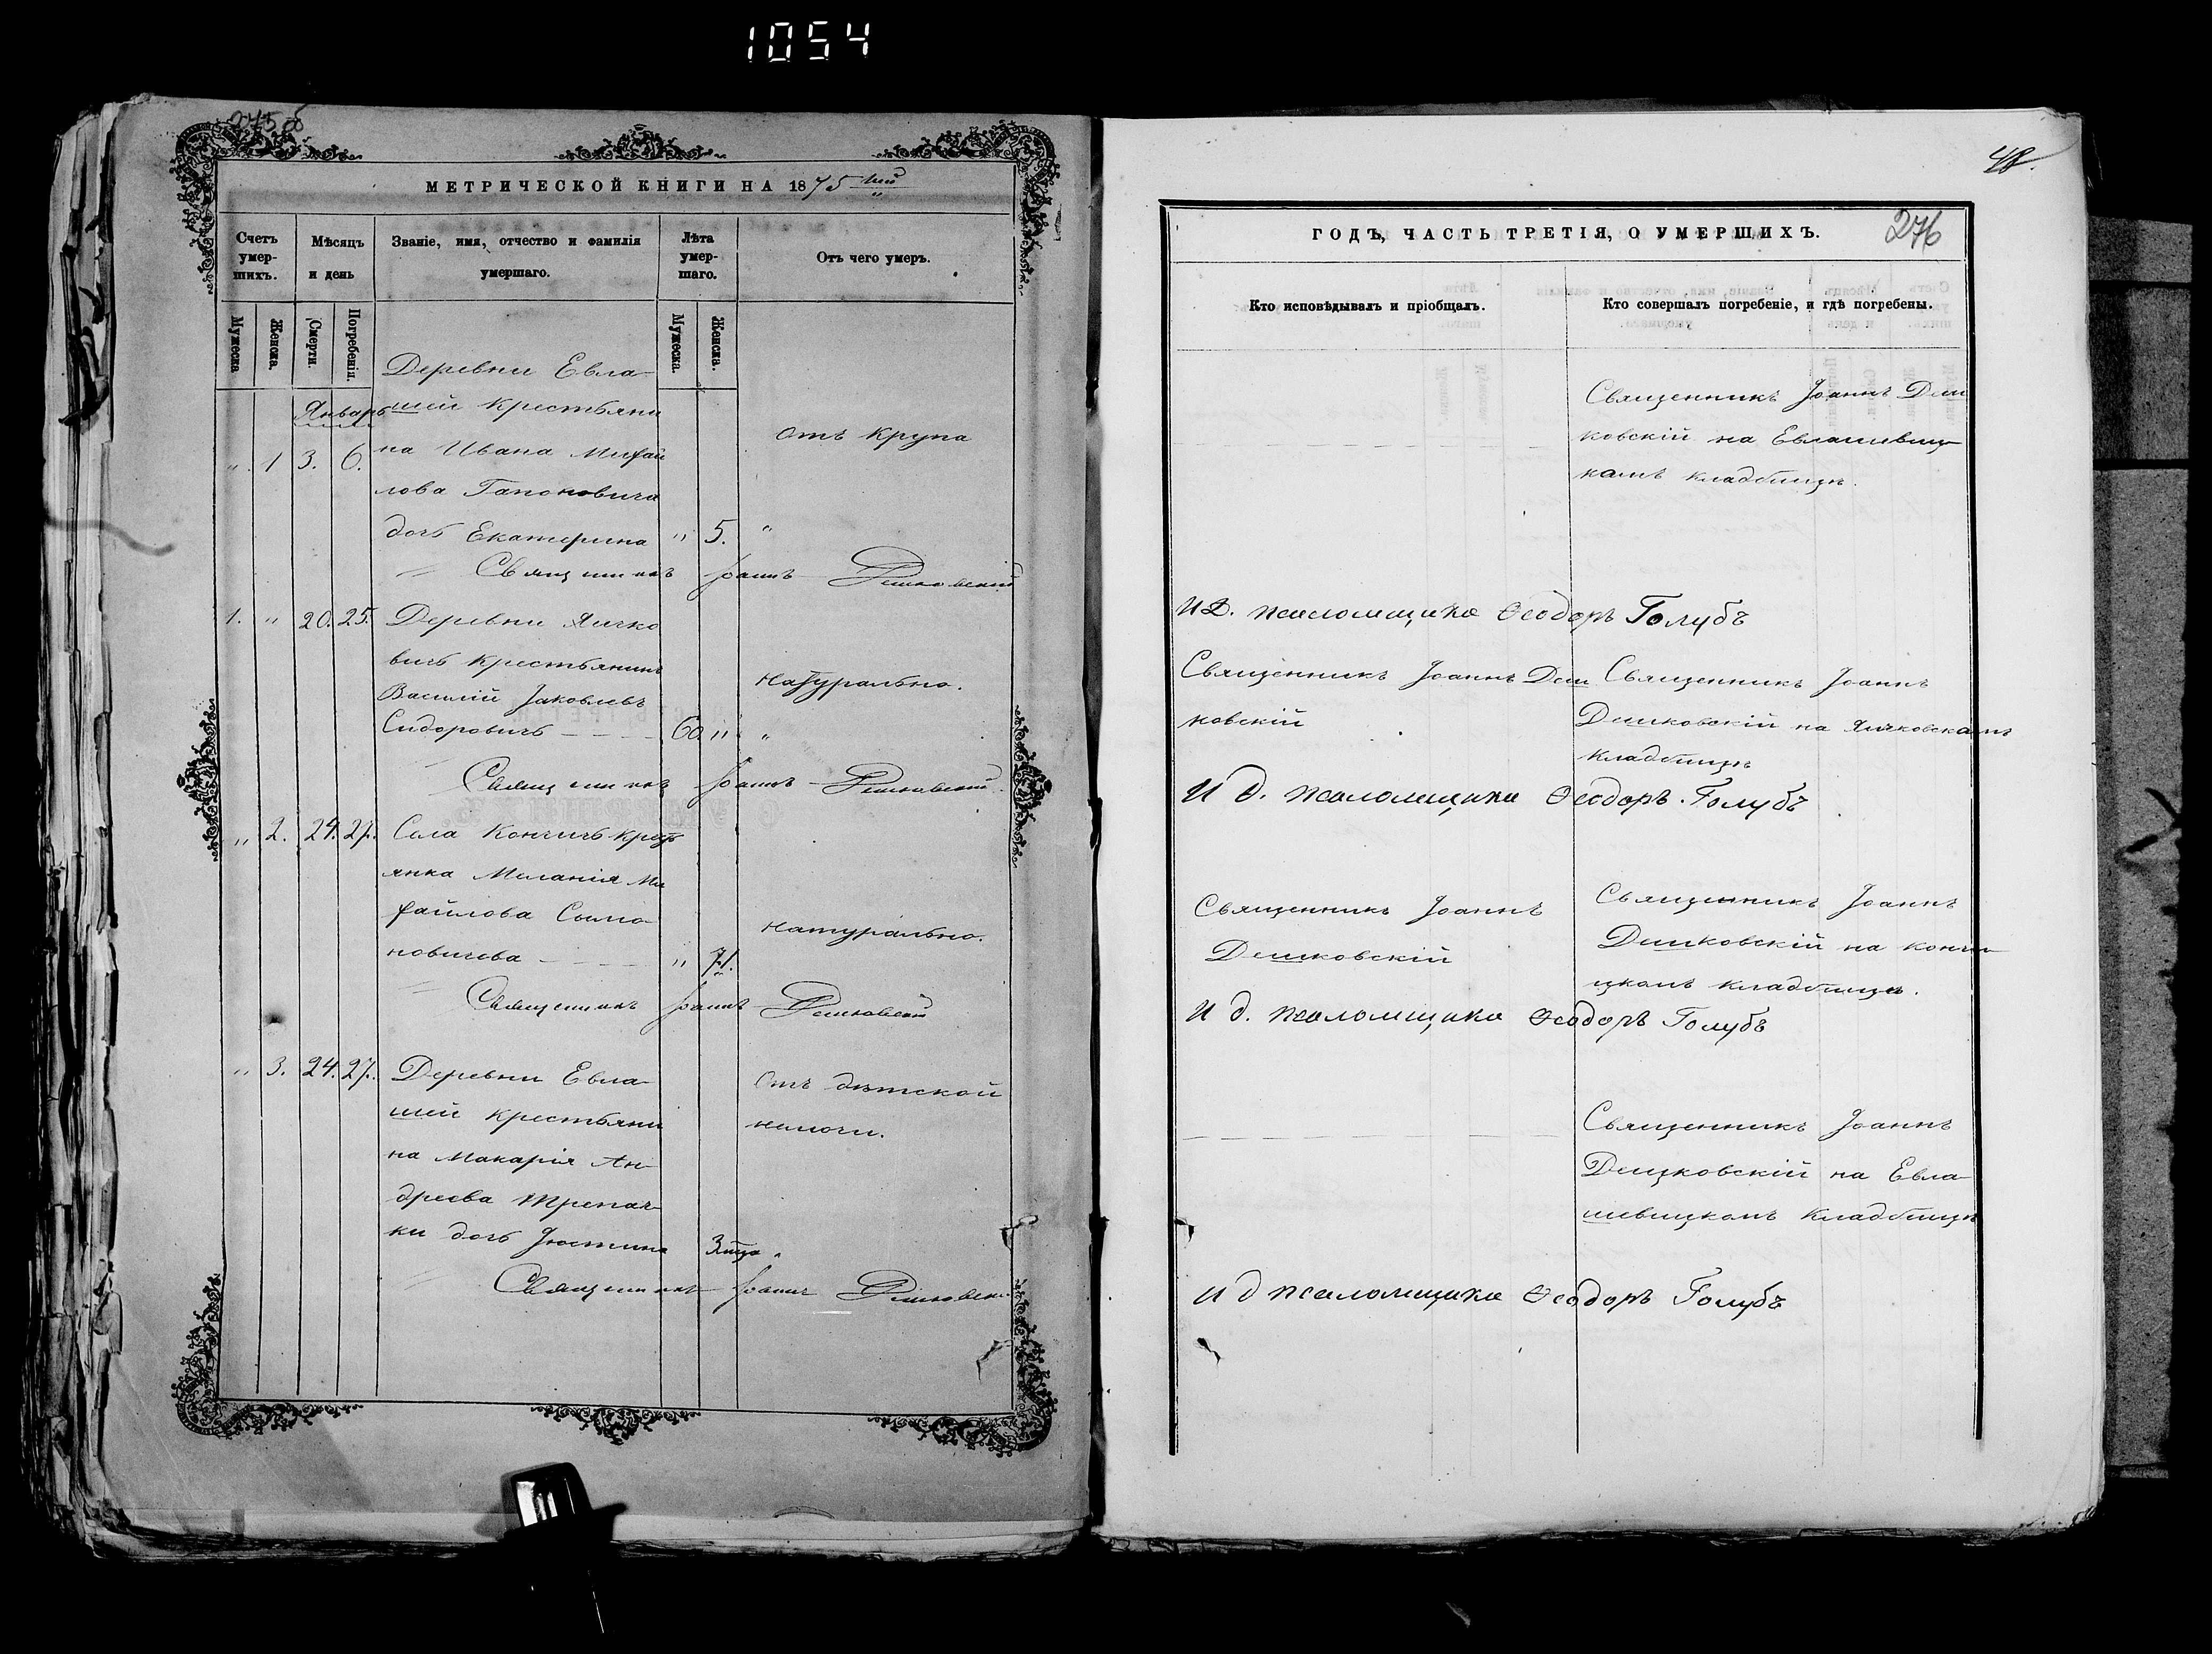 1054
275 об
МЕТРИЧЕСКОЙ КНИГИ НА 1875 ый
Счетъ умер-шихъ.
Мѣсяцъ и день
Званіе, имя, отчество и фамилія умершаго.
Лѣта умер-шаго.
Отъ чего умеръ.
Мужеска.
Женска.
Смерти.
Погребенія.
Мужеска.
Женска.
Деревни Евла-
Январь шей крестьяни
на Ивана Михай
" 1 3. 6.
отъ крупа
лова Гапоновича
дочь Екатерина " 5. "
Священникъ Іоаннъ Дешковскій
1. " 20. 25. Деревни Яичко
вичь крестьянинъ
Василій Іаковлевъ
натурально.
Сидоровичъ 60. " "
Священникъ Іоаннъ Дешковскій
" 2. 24. 27. Села Кончичь крест
янка Меланія Ми
хайлова Симо
натурально.
новичева " 71.
Священникъ Іоаннъ Дешковскій
" 3. 24. 27. Деревни Евла-
Отъ дѣтской
шей крестьяни
немочи.
на Макарія Ан-
дреева Трепач-
ки дочь Іюстина 3 "
Священникъ Іоаннъ Дешковскій
48.
276
ГОДЪ, ЧАСТЬ ТРЕТІЯ, О УМЕРШИХЪ.
Кто исповѣдывалъ и пріобщалъ.
Кто совершалъ погребеніе, и гдѣ погребены.
Священникъ Іоаннъ Деш
ковскій на Евлашевиц
комъ кладбищѣ.
И д. псаломщика Ѳеодоръ Голубъ
Священникъ Іоаннъ Деш
ковскій
Священникъ Іоаннъ
Дешковскій на Яичковскомъ
кладбищѣ
И д. псаломщика Ѳеодоръ Голубъ
Священникъ Іоаннъ
Дешковскій
Священникъ Іоаннъ
Дешковскій на Кончи-
цкомъ кладбищѣ.
И д. псаломщика Ѳеодоръ Голубъ
Священникъ Іоаннъ
Дешковскій на Евла
шевицкомъ кладбищѣ
И д псаломщика Ѳеодоръ Голубъ